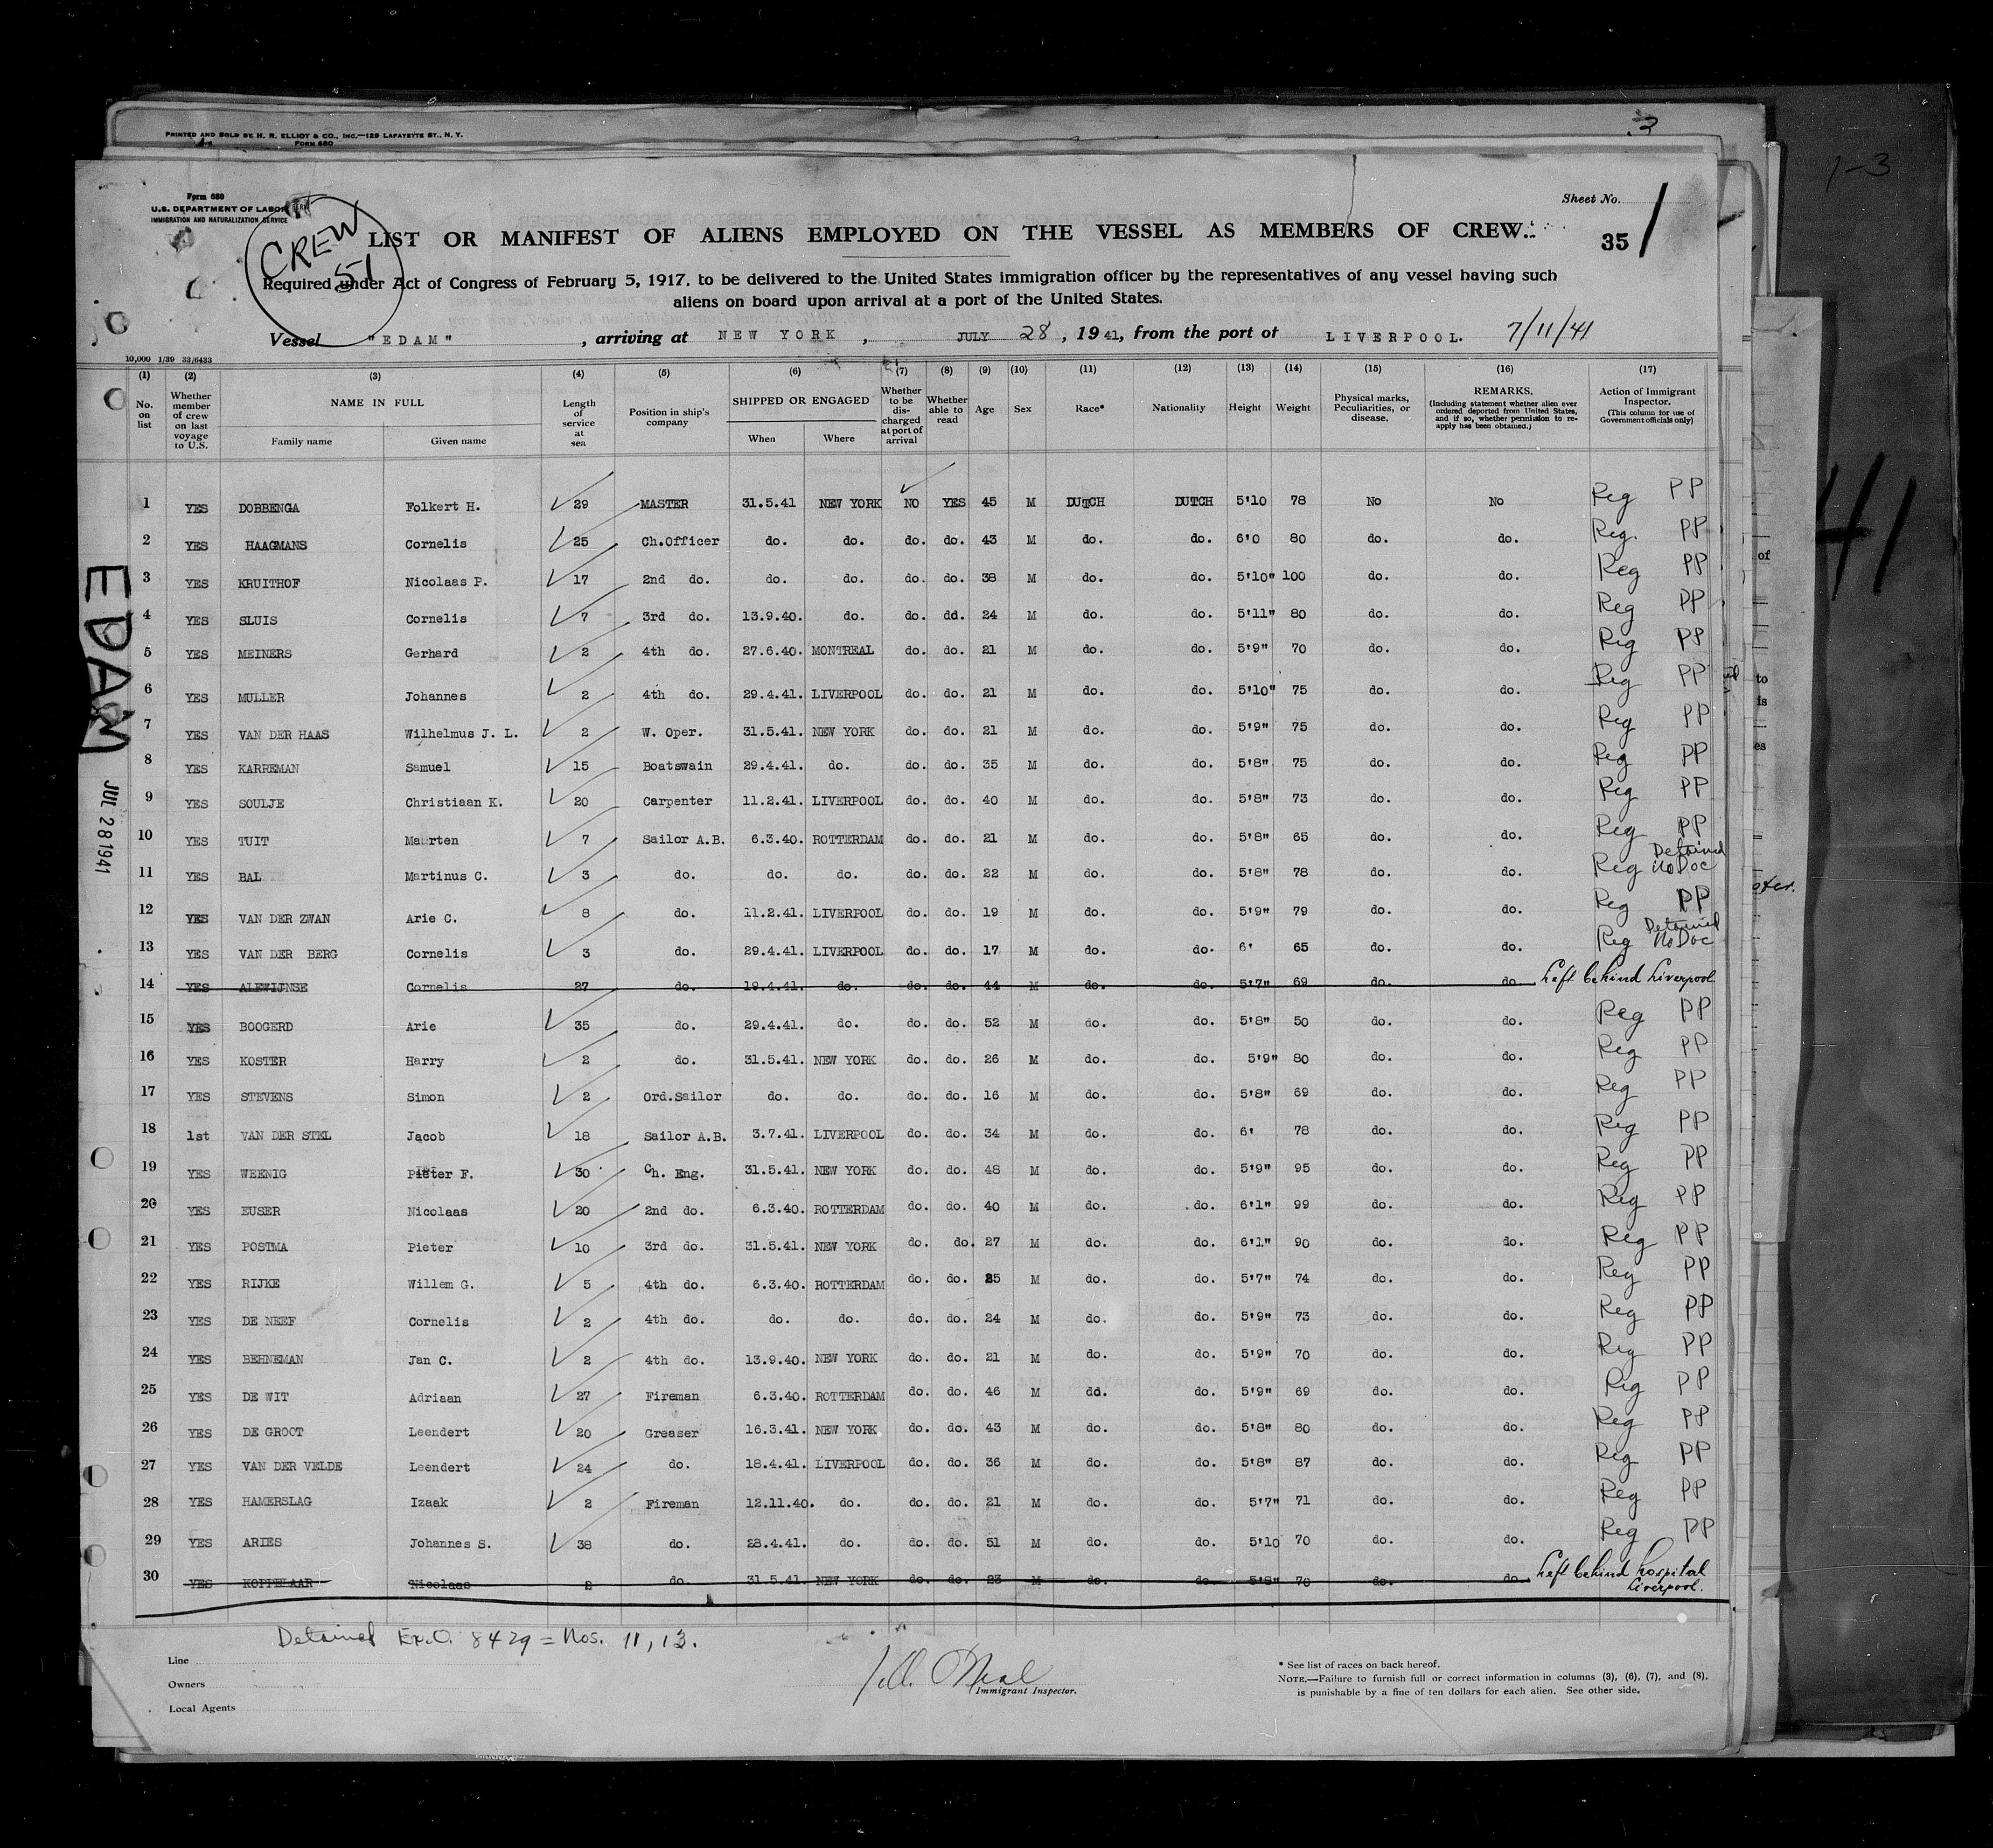 PRINTED AND SOLD BY H. R. ELLIOT & CO., INC.—129 LAFAYETTE ST., N. Y.
FORM 680
3
1-3
Form 680
U.S. DEPARTMENT OF LABOR
IMMIGRATION AND NATURALIZATION SERVICE
CREW
51
Sheet No.
LIST OR MANIFEST OF ALIENS EMPLOYED ON THE VESSEL AS MEMBERS OF CREW.
35 1
Required under Act of Congress of February 5, 1917, to be delivered to the United States immigration officer by the representatives of any vessel having such
aliens on board upon arrival at a port of the United States.
Vessel "EDAM", arriving at NEW YORK, JULY 28, 1941, from the port of LIVERPOOL. 7/11/41
10,000 1/39 33/6433
(1) (2) (3) (4) (5) (6) (7) (8) (9) (10) (11) (12) (13) (14) (15) (16) (17)
No. on list
Whether member of crew on last voyage to U.S.
NAME IN FULL
Family name Given name
Length of service at sea
Position in ship's company
SHIPPED OR ENGAGED
When Where
Whether to be discharged at port of arrival
Whether able to read
Age
Sex
Race*
Nationality
Height
Weight
Physical marks, Peculiarities, or disease.
REMARKS.
(Including statement whether alien ever ordered deported from United States, and if so, whether permission to re-apply has been obtained.)
Action of Immigrant Inspector.
(This column for use of Government officials only)
1 YES DOBBENGA Folkert H. 29 MASTER 31.5.41 NEW YORK NO YES 45 M DUTCH DUTCH 5'10 78 No No Reg PP
2 YES HAAGMANS Cornelis 25 Ch.Officer do. do. do. do. 43 M do. do. 6'0 80 do. do. Reg. PP
3 YES KRUITHOF Nicolaas P. 17 2nd do. do. do. do. do. 38 M do. do. 5'10" 100 do. do. Reg PP
4 YES SLUIS Cornelis 7 3rd do. 13.9.40. do. do. dd. 24 M do. do. 5'11" 80 do. do. Reg PP
5 YES MEINERS Gerhard 2 4th do. 27.6.40. MONTREAL do. do. 21 M do. do. 5'9" 70 do. do. Reg PP
6 YES MULLER Johannes 2 4th do. 29.4.41. LIVERPOOL do. do. 21 M do. do. 5'10" 75 do. do. Reg PP
7 YES VAN DER HAAS Wilhelmus J. L. 2 W. Oper. 31.5.41. NEW YORK do. do. 21 M do. do. 5'9" 75 do. do. Reg PP
8 YES KARREMAN Samuel 15 Boatswain 29.4.41. do. do. do. 35 M do. do. 5'8" 75 do. do. Reg PP
9 YES SOULJE Christiaan K. 20 Carpenter 11.2.41. LIVERPOOL do. do. 40 M do. do. 5'8" 73 do. do. Reg PP
10 YES TUIT Maurten 7 Sailor A.B. 6.3.40. ROTTERDAM do. do. 21 M do. do. 5'8" 65 do. do. Reg PP
11 YES BAL Martinus C. 3 do. do. do. do. do. 22 M do. do. 5'8" 78 do. do. Reg Detained No Doc
12 YES VAN DER ZWAN Arie C. 8 do. 11.2.41. LIVERPOOL do. do. 19 M do. do. 5'9" 79 do. do. Reg PP
13 YES VAN DER BERG Cornelis 3 do. 29.4.41. LIVERPOOL do. do. 17 M do. do. 6' 65 do. do. Reg Detained No Doc
14 YES ALEWIJNSE Cornelis 27 do. 19.4.41. do. do. do. 44 M do. do. 5'7" 69 do. do. Left behind Liverpool
15 YES BOOGERD Arie 35 do. 29.4.41. do. do. do. 52 M do. do. 5'8" 50 do. do. Reg PP
16 YES KOSTER Harry 2 do. 31.5.41. NEW YORK do. do. 26 M do. do. 5'9" 80 do. do. Reg PP
17 YES STEVENS Simon 2 Ord.Sailor do. do. do. do. 16 M do. do. 5'8" 69 do. do. Reg PP
18 1st VAN DER STEL Jacob 18 Sailor A.B. 3.7.41. LIVERPOOL do. do. 34 M do. do. 6' 78 do. do. Reg PP
19 YES WEENIG Pieter F. 30 Ch. Eng. 31.5.41. NEW YORK do. do. 48 M do. do. 5'9" 95 do. do. Reg PP
20 YES EUSER Nicolaas 20 2nd do. 6.3.40. ROTTERDAM do. do. 40 M do. do. 6'1" 99 do. do. Reg PP
21 YES POSTMA Pieter 10 3rd do. 31.5.41. NEW YORK do. do. 27 M do. do. 6'1" 90 do. do. Reg PP
22 YES RIJKE Willem G. 5 4th do. 6.3.40. ROTTERDAM do. do. 25 M do. do. 5'7" 74 do. do. Reg PP
23 YES DE NEEF Cornelis 2 4th do. do. do. do. do. 24 M do. do. 5'9" 73 do. do. Reg PP
24 YES BEHNEMAN Jan C. 2 4th do. 13.9.40. NEW YORK do. do. 21 M do. do. 5'9" 70 do. do. Reg PP
25 YES DE WIT Adriaan 27 Fireman 6.3.40. ROTTERDAM do. do. 46 M dd. do. 5'9" 69 do. do. Reg PP
26 YES DE GROOT Leendert 20 Greaser 16.3.41. NEW YORK do. do. 43 M do. do. 5'8" 80 do. do. Reg PP
27 YES VAN DER VELDE Leendert 24 do. 18.4.41. LIVERPOOL do. do. 36 M do. do. 5'8" 87 do. do. Reg PP
28 YES HAMERSLAG Izaak 2 Fireman 12.11.40. do. do. do. 21 M do. do. 5'7" 71 do. do. Reg PP
29 YES ARIES Johannes S. 38 do. 28.4.41. do. do. do. 51 M do. do. 5'10 70 do. do. Reg PP
30 YES KOPPELAAR Nicolaas 2 do. 31.5.41. NEW YORK do. do. 23 M do. do. 5'8" 70 do. do. Left behind hospital Liverpool.
EDAM
JUL 28 1941
Detained Ex.O. 8429 = Nos. 11, 13.
Line
Owners
Local Agents
Immigrant Inspector.
* See list of races on back hereof.
NOTE.—Failure to furnish full or correct information in columns (3), (6), (7), and (8),
is punishable by a fine of ten dollars for each alien. See other side.